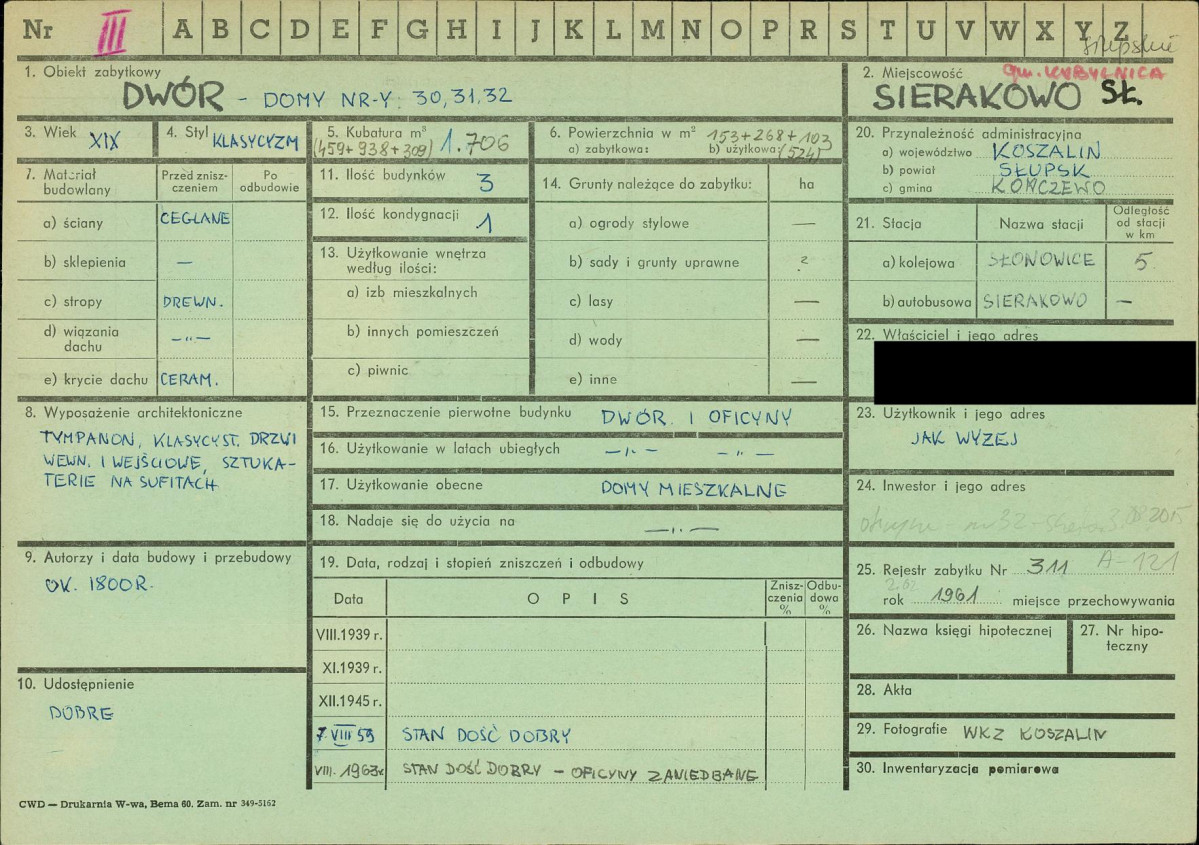 Nr III A B C D E F G H I J K L M N O P R S T U V W X Y Z
słupskie
1. Obiekt zabytkowy
DWÓR - DOMY NR-Y: 30, 31, 32
2. Miejscowość gm. KOBYLNICA
SIERAKOWO SŁ.
3. Wiek XIX
4. Styl KLASYCYZM
5. Kubatura m³
(459+938+309) 1.706
6. Powierzchnia w m² 153+268+103
a) zabytkowa: b) użytkowa: (524)
20. Przynależność administracyjna
a) województwo KOSZALIN
b) powiat SŁUPSK
c) gmina KOŃCZEWO
7. Materiał budowlany
Przed znisz-
czeniem
Po
odbudowie
a) ściany CEGLANE
b) sklepienia —
c) stropy DREWN.
d) wiązania
dachu —"—
e) krycie dachu CERAM.
11. Ilość budynków 3
12. Ilość kondygnacji 1
13. Użytkowanie wnętrza
według ilości:
a) izb mieszkalnych
b) innych pomieszczeń
c) piwnic
14. Grunty należące do zabytku: ha
a) ogrody stylowe —
b) sady i grunty uprawne ?
c) lasy —
d) wody —
e) inne —
21. Stacja Nazwa stacji
Odległość
od stacji
w km
a) kolejowa SŁONOWICE 5
b) autobusowa SIERAKOWO —
22. Właściciel i jego adres
8. Wyposażenie architektoniczne
TYMPANON, KLASYCYST. DRZWI
WEWN. I WEJŚCIOWE, SZTUKA-
TERIE NA SUFITACH
15. Przeznaczenie pierwotne budynku DWÓR I OFICYNY
16. Użytkowanie w latach ubiegłych —"— —"—
17. Użytkowanie obecne DOMY MIESZKALNE
18. Nadaje się do użycia na —"—
23. Użytkownik i jego adres
JAK WYŻEJ
24. Inwestor i jego adres
08 2015
9. Autorzy i data budowy i przebudowy
OK. 1800 R.
19. Data, rodzaj i stopień zniszczeń i odbudowy
Data OPIS
Znisz-
czenia
%
Odbu-
dowa
%
VIII.1939 r.
XI.1939 r.
XII.1945 r.
7.VIII 59 STAN DOŚĆ DOBRY
VIII. 1963 r. STAN DOŚĆ DOBRY - OFICYNY ZANIEDBANE
25. Rejestr zabytku Nr 311 A-121
rok 1961 miejsce przechowywania
26. Nazwa księgi hipotecznej
27. Nr hipo-
teczny
10. Udostępnienie
DOBRE
28. Akta
29. Fotografie WKZ KOSZALIN
30. Inwentaryzacja pomiarowa
CWD — Drukarnia W-wa, Bema 60. Zam. nr 349-5162